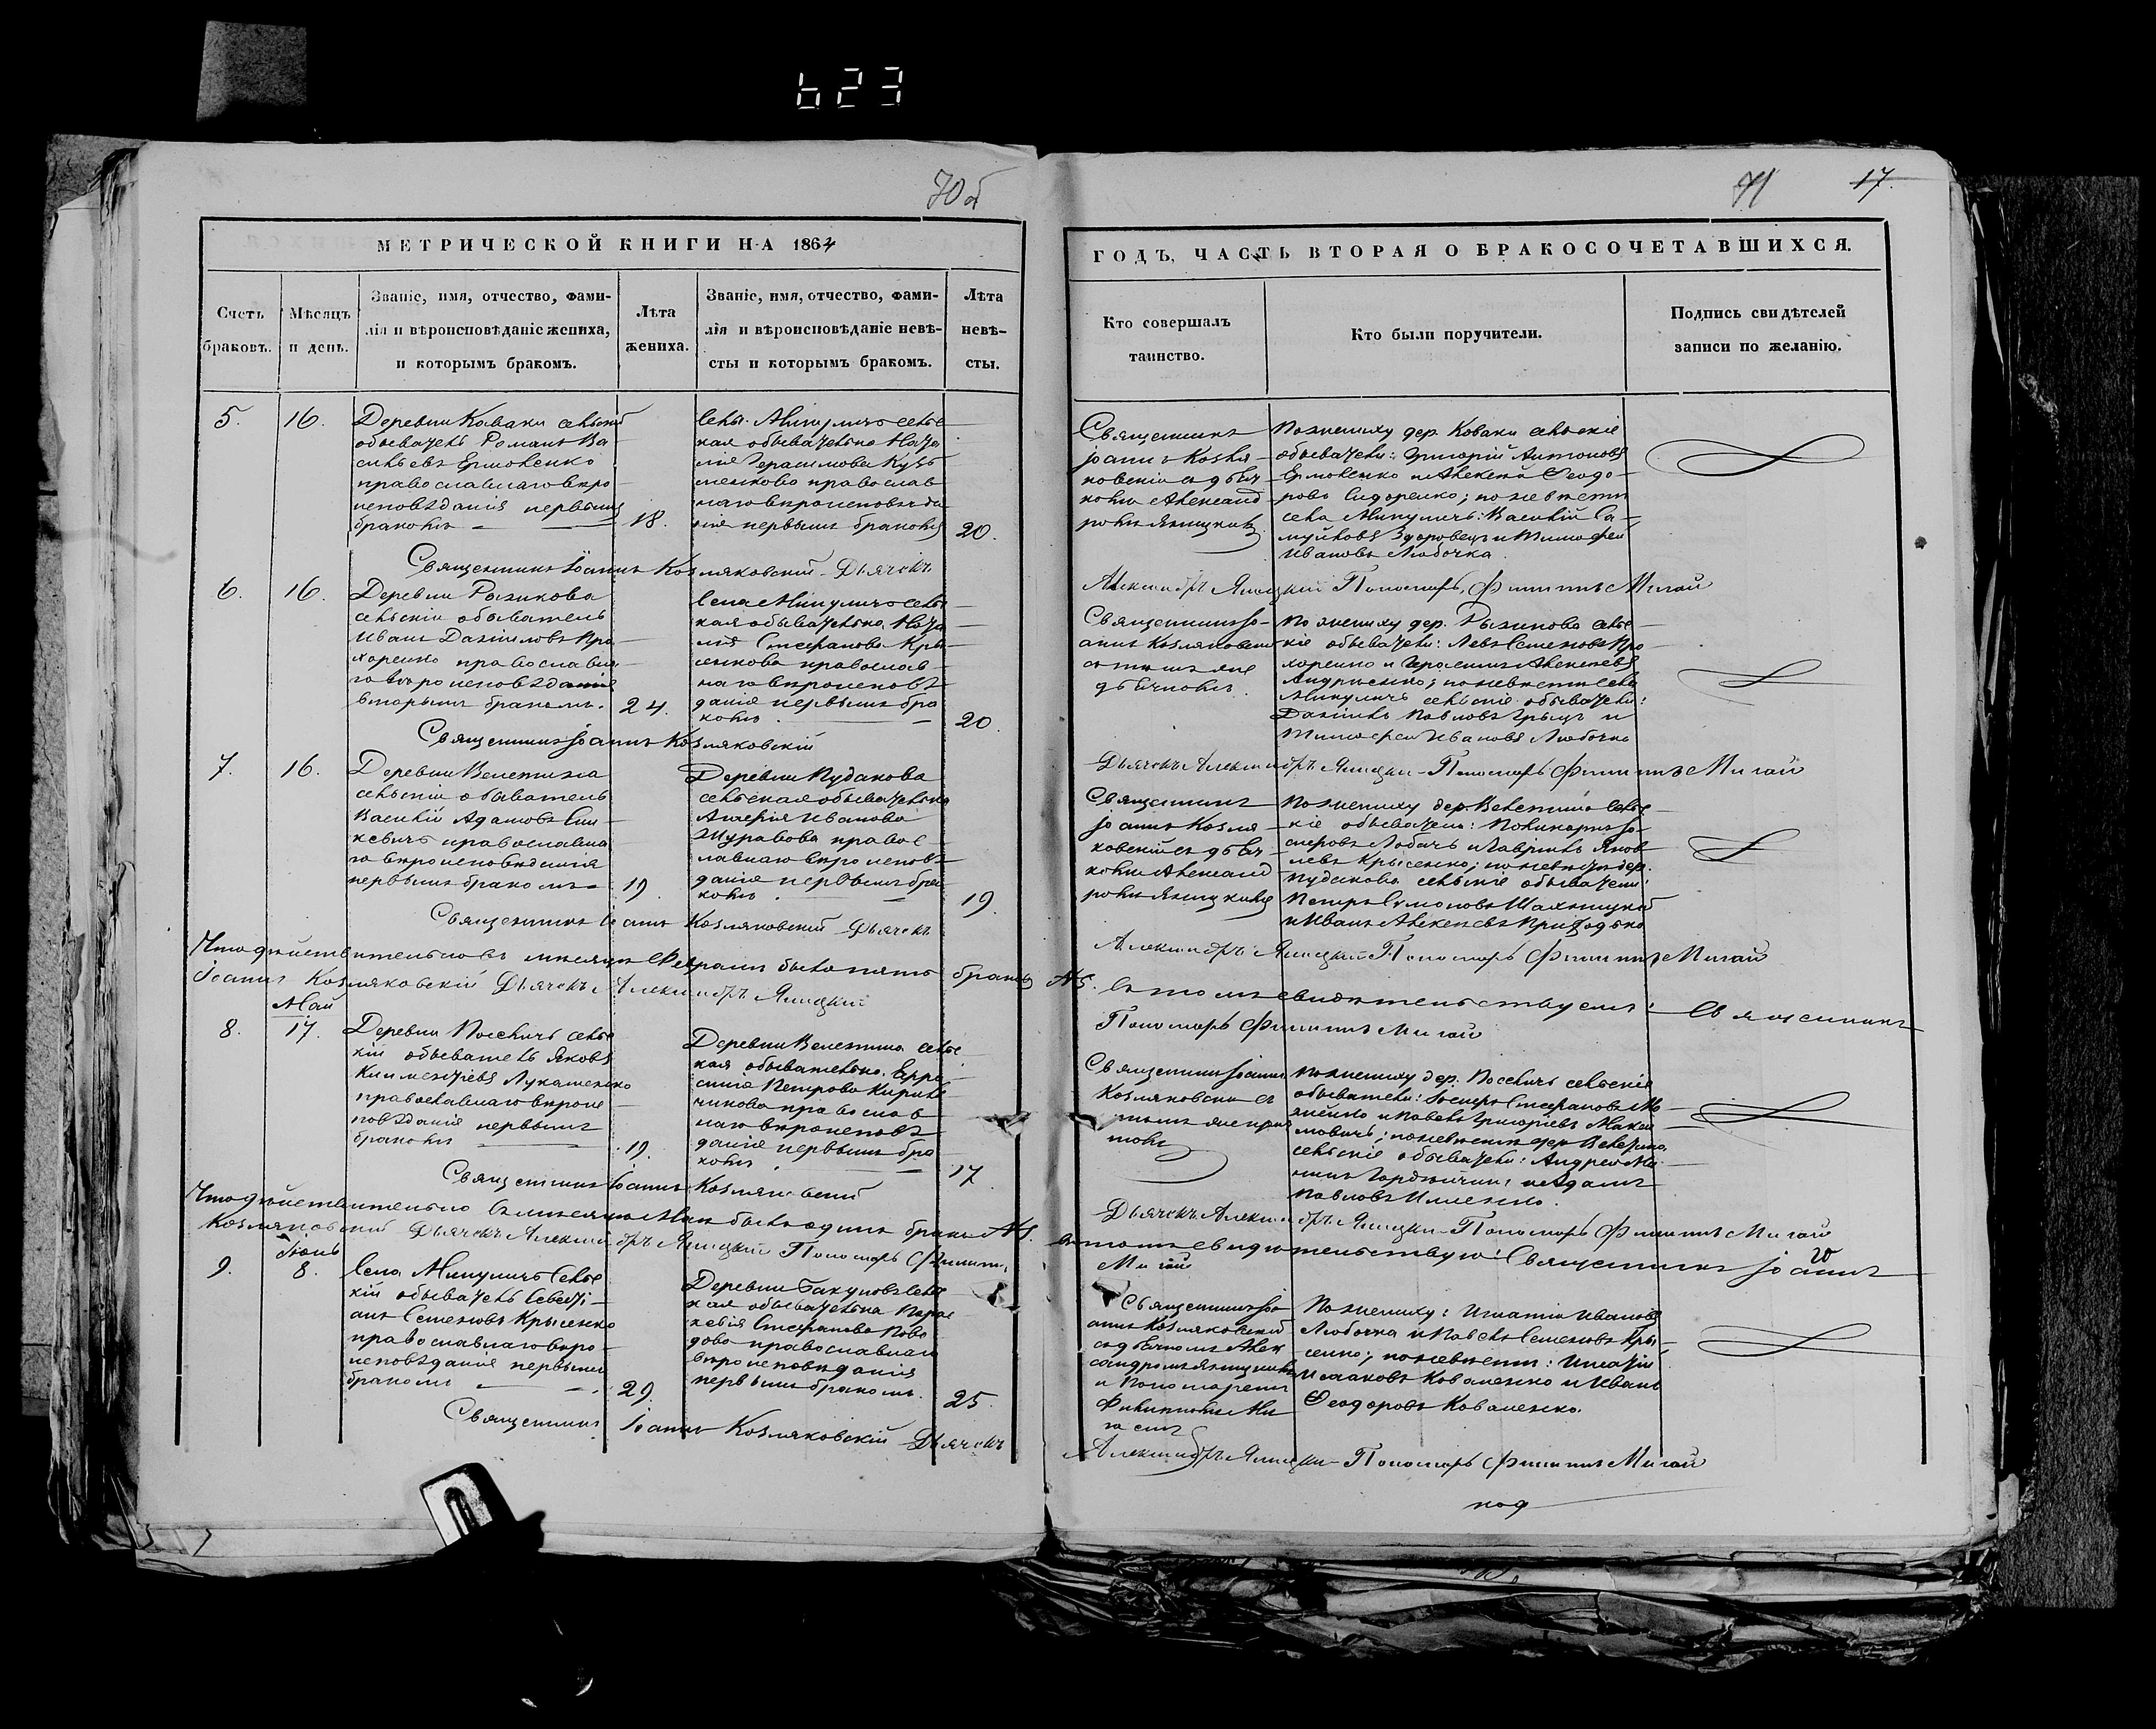 623
70б
71 17.
МЕТРИЧЕСКОЙ КНИГИ НА 1864
ГОДЪ, ЧАСТЬ ВТОРАЯ О БРАКОСОЧЕТАВШИХСЯ.
Счетъ браковъ.
Мѣсяцъ и день.
Званіе, имя, отчество, фами-
лія и вѣроисповѣданіе жениха,
и которымъ бракомъ.
Лѣта
жениха.
Званіе, имя, отчество, фами-
лія и вѣроисповѣданіе невѣ-
сты и которымъ бракомъ.
Лѣта
невѣ-
сты.
Кто совершалъ
таинство.
Кто были поручители.
Подпись свидѣтелей
записи по желанію.
5. 16.
Деревни Коваки сельскій
обыватель Романъ Ва
сильевъ Ермоленко
православнаго вѣро
исповѣданія первымъ
бракомъ 18.
Села Микуличъ сельс
кая обывателька Ната
лія Герасимова Кузь
менкова православ
наго вѣроисповѣда
нія первымъ бракомъ 20.
Священникъ
Іоаннъ Козля
ковскій съ дьяч
комъ Александ
ромъ Ялицкимъ
По жениху дер. Коваки сельскіе
обыватели: Григорій Антоновъ
Ермоленко и Алексей Ѳеодо
ровъ Сидоренко; по невѣсте
села Микуличъ: Василій Са
муйловъ Здоровецъ и Тимофей
Ивановъ Любочка.
Священникъ Іоаннъ Козляковскій Дьячекъ
Александръ Ялицкій Пономарь Филиппъ Мигай
6. 16.
Деревни Рыжкова
сельскій обыватель
Иванъ Даніиловъ Про
хоренко православна
го вѣроисповѣданія
вторымъ бракомъ. 24.
Села Микуличъ сельс
кая обывателька Ната
лія Стефанова Кры
сенкова православ
наго вѣроисповѣ
данія первымъ бра
комъ 20.
Священникъ Іо
аннъ Козляковскій
съ тѣмъ же
дьячкомъ.
По жениху дер. Рыжкова сельс
кіе обыватели: Левъ Семеновъ Про
хоренко и Герасимъ Алексеевъ
Андриенко; по невѣсте села
Микуличъ сельскіе обыватели:
Даніилъ Павловъ Грыцъ и
Тимофей Ивановъ Любочка
Священникъ Іоаннъ Козляковскій
Дьячекъ Александръ Ялицкій Пономарь Филиппъ Мигай
7. 16.
Деревни Велетина
сельскій обыватель
Василій Адамовъ
православна
го вѣроисповѣданія
первымъ бракомъ 19.
Деревни Пудакова
сельская обывателька
Иванова
Журавова правос
лавнаго вѣроисповѣ
данія первымъ бра
комъ 19.
Священникъ
Іоаннъ Козля
ковскій съ дьяч
комъ Александ
ромъ Ялицкимъ
По жениху дер. Велетина сельс
кіе обыватели: Поликарпъ Іо
сифовъ Лобачъ и Гавріилъ Яков
левъ Крысенко; по невѣсте дер.
Пудакова сельскіе обыватели:
Петръ Симоновъ
и Иванъ Алексеевъ
Священникъ Іоаннъ Козляковскій Дьячекъ
Александръ Ялицкій Пономарь Филиппъ Мигай
Что дѣйствительно въ мѣсяцѣ Февралѣ было пять браковъ №5. въ томъ свидѣтельствуемъ: Священникъ
Іоаннъ Козляковскій Дьячекъ Александръ Ялицкій Пономарь Филиппъ Мигай
Май
8. 17.
Деревни сельс
кій обыватель Яковъ
Климентіевъ Лукашенко
православнаго вѣроис
повѣданія первымъ
бракомъ 19.
Деревни Велетина сельс
кая обывателька Евфро
синія Петрова
православ
наго вѣроисповѣ
данія первымъ бра
комъ 17
Священникъ Іоаннъ
Козляковскій съ
тѣмъ же прич
томъ
По жениху дер. сельскіе
обыватели: Іосифъ Стефановъ
и Павелъ Григоріевъ Макси
мовичъ; по невѣсте дер. Велетина
сельскіе обыватели: Андрей
и Адамъ
Павловъ
Священникъ Іоаннъ Козляковскій
Дьячекъ Александръ Ялицкій Пономарь Филиппъ Мигай
Что дѣйствительно въ мѣсяцѣ Маѣ былъ одинъ бракъ №1. въ томъ свидѣтельствую: Священникъ Іоаннъ
Козляковскій Дьячекъ Александръ Ялицкій Пономарь Филиппъ Мигай
Іюнь
9. 8.
Села Микуличъ сельс
кій обыватель Севасті
анъ Семеновъ Крысенко
православнаго вѣро
исповѣданія первымъ
бракомъ 29.
Деревни сельс
кая обывателька Парас
кевія Стефанова
православнаго
вѣроисповѣданія
первымъ бракомъ. 25.
Священникъ Іо
аннъ Козляковскій
съ дьячкомъ Алек
сандромъ Ялицкимъ
и Пономаремъ
Филиппомъ Ми
гаемъ
По жениху: Игнатій Ивановъ
Любочка и Павелъ Семеновъ Кры
сенко; по невѣсте: Игнатій
Исааковъ Коваленко и Иванъ
Ѳеодоровъ Коваленко.
Священникъ Іоаннъ Козляковскій Дьячекъ
Александръ Ялицкій Пономарь Филиппъ Мигай